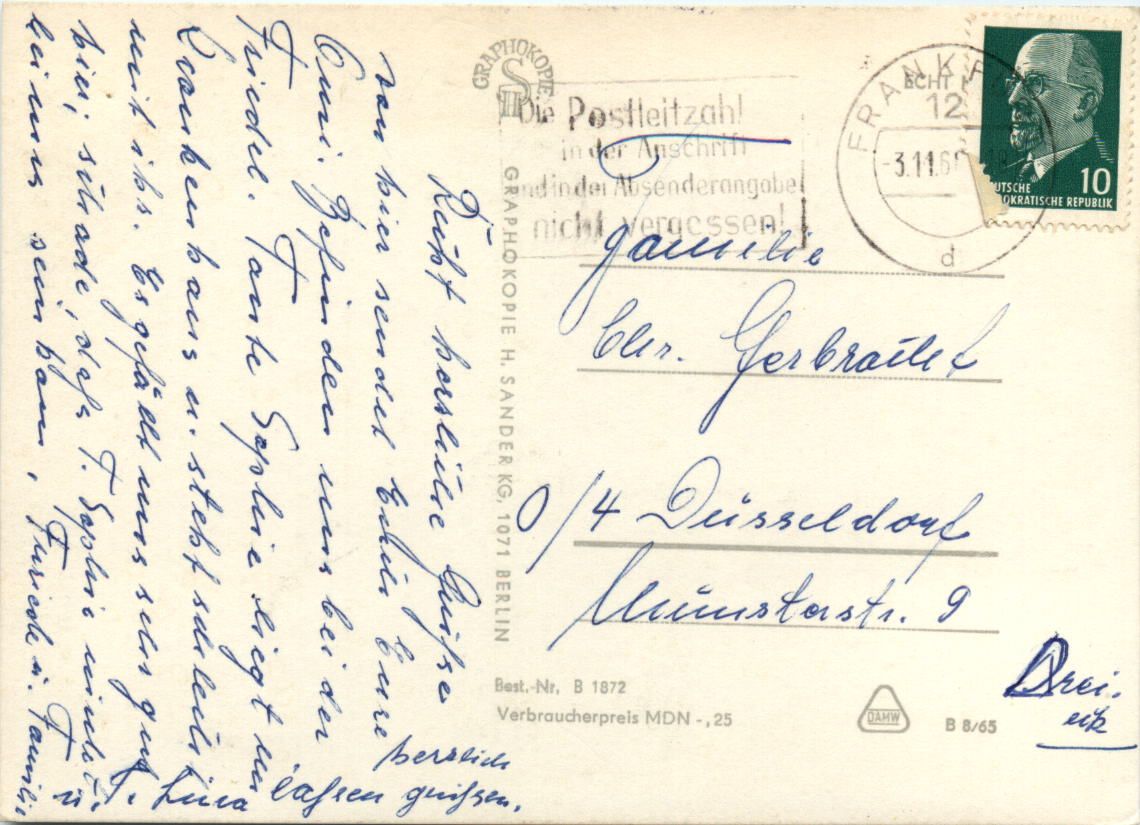 Recht herzliche Grüße
von hier sendet Euch Eure
Omi. Befinden uns bei der
Friedel. Tante Sophie liegt im
Krankenhaus u. steht schlecht
mit ihr. Es gefällt uns sehr gut
hier, schade, dass T. Sophie nicht
bei uns sein kann,
u. Familie
u. T. Lina lassen herzlich
grüssen.
GRAPHOKOPIE
H S
GRAPHOKOPIE H. SANDER KG, 1071 BERLIN
ECHT
Die Postleitzahl
in der Anschrift
und in der Absenderangabe
nicht vergessen!
FRANKF
12
-3.11.6
d
10
DEUTSCHE
DEMOKRATISCHE REPUBLIK
Familie
Chr.
O/4 Düsseldorf
Münsterstr. 9
Drei-
eck
Best.-Nr. B 1872
Verbraucherpreis MDN -,25
DAMW
B 8/65